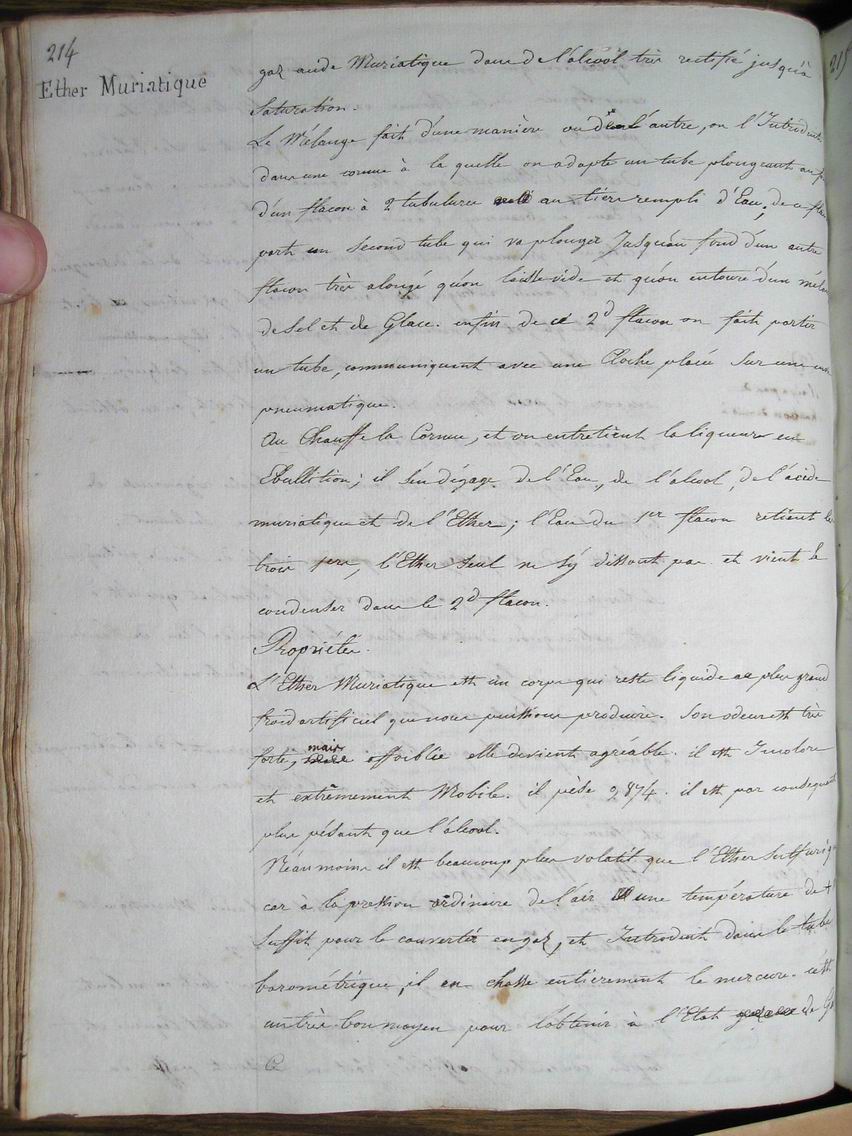 214
Ether Muriatique
gaz acide Muriatique dans de l'alcool très rectifié jusqu'à
Saturation.
Le Mélange fait d'une manière ou de l'autre, on l'Introduit
dans une cornue à la quelle on adapte un tube plongeant au
d'un flacon à 2 tubulures au tiers rempli d'Eau, de ce
part un second tube qui va plonger Jusqu'au fond d'un autre
flacon très alongé qu'on laisse vide et qu'on entoure d'un
de Sel et de Glace. enfin de ce 2d flacon on fait partir
un tube, communiquant avec une Cloche placée Sur une
pneumatique.
On Chauffe la Cornue, et on entretient la liqueur en
Ebullition; il s'en dégage de l'Eau, de l'alcool, de l'acide
muriatique et de l'Ether; l'Eau du 1er flacon retient les
trois 1ers, l'Ether Seul ne s'y dissout pas et vient se
condenser dans le 2d flacon.
Propriétés.
L'Ether Muriatique est un corps qui reste liquide au plus grand
froid artificiel que nous puissions produire. Son odeur est très
forte, mais affoiblie elle devient agréable. il est Incolore
et extrêmement Mobile. il pèse 2874. il est par consequent
plus pésant que l'alcool.
Néanmoins il est beaucoup plus volatil que l'Ether Sulfuriq
car à la pression ordinaire de l'air une température de +
Suffit pour le convertir en gaz, et Introduit dans le tube
barométrique, il en chasse entièrement le mercure. c'est
un très bon moyen pour l'obtenir à l'Etat de